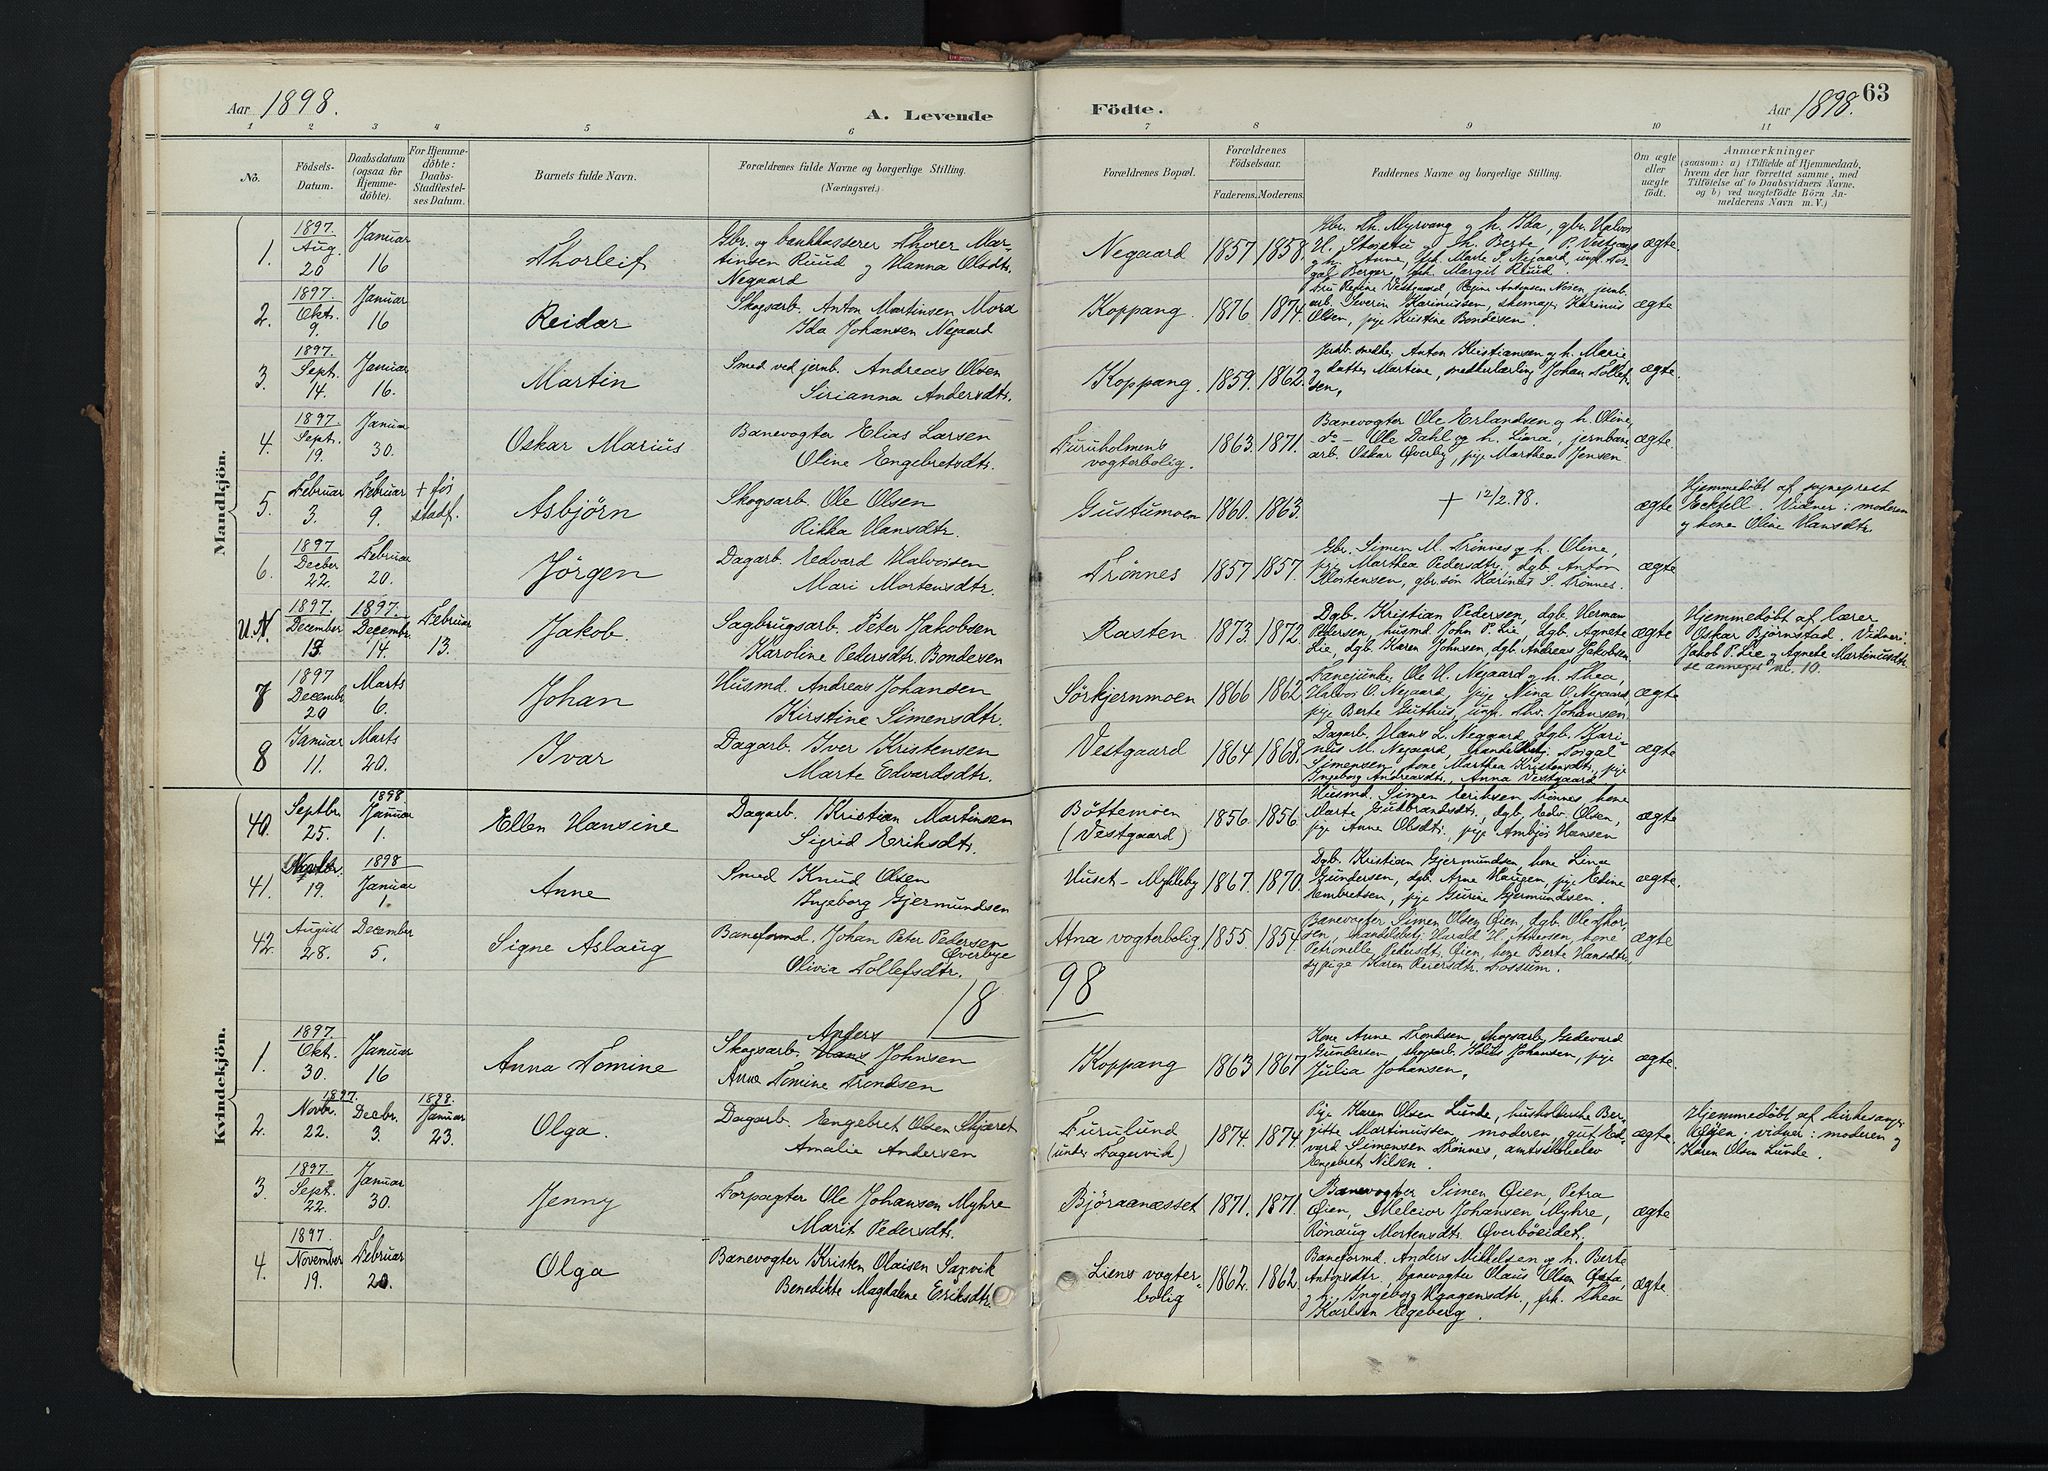 Aar 1898.
A. Levende
Födte.
Aar 1898.
63
1 2 3 4 5 6 7 8 9 10 11
No.
Födsels-
Datum.
Daabsdatum
(ogsaa for
Hjemme-
döbte).
For Hjemme-
döbte:
Daabs-
Stadfæstel-
ses Datum.
Barnets fulde Navn.
Forældrenes fulde Navne og borgerlige Stilling.
(Næringsvei.)
Forældrenes Bopæl.
Forældrenes
Födselsaar.
Faderens. Moderens.
Faddernes Navne og borgerlige Stilling.
Om ægte
eller
uægte
födt.
Anmærkninger
(saasom: a) i Tilfælde af Hjemmedaab,
hvem der har forrettet samme, med
Tilföielse af to Daabsvidners Navne,
og b) ved uægtefödte Börn An-
melderens Navn m. V.)
Mandkjön.
1. 1897 Aug. 20 Januar 16 Thorleif
Gbr. og bankkasserer Thorer Mar-
tinsen Ruud og Hanna Olsdtr.
Negaard
Negaard 1857 1858.
Gbr. Th. Myrvang og h. Ida, gbr. Halvor
H. Storstu og h. Berte, P. Vestgaard
og h. Anne, Marte S. Negaard, ungk. Tor-
gal Berger, Margit Ruud.
ægte
2. 1897. Okt. 9. Januar 16 Reidar
Skogsarb. Anton Martinsen Mora
Ida Johansen Negaard
Koppang. 1876 1874.
Fru Regine Vestgaard, Regine Antonsen Nosen, jernb.
arb. Severin Karinussen, skomager Karinus
Olsen, pige Kristine Bondesen.
ægte
3. 1897. Sept. 14. Januar 16. Martin
Smed ved jernb. Andreas Olsen
Sirianna Andersdtr.
Koppang. 1859. 1862.
Anton Kristiansen og h. Marie
og datter Martine, smedlærling Johan Tollef-
sen,
ægte.
4. 1897. Sept. 19. Januar 30. Oskar Marius
Banevogter Elias Larsen
Oline Engebretsdtr.
Furuholmens
vogterbolig. 1863. 1871.
Banevogter Ole Erlandsen og h. Oline,
do - Ole Dahl og h. Lina, jernbane
arb. Oskar Øverby, pige Marthea Jensen
ægte.
5. Februar 3. Februar 9. + før stadf. Asbjörn
Skogsarb. Ole Olsen
Rikka Hansdtr.
Gustumoen 1860. 1863.
+ 12/2. 98.
ægte
Hjemmedöbt af sogneprest
Vidner: moderen
og kone Oline Hansdtr.
6. 1897 Decber 22. Februar 20. Jörgen
Dagarb. Edvard Halvorsen
Mari Mortensdtr.
Trönnes 1857 1857.
Gbr. Simen M. Trönnes og h. Oline,
pige Marthea Pedersdtr., dgb. Anton
Mortensen, gbr.sön Karinus S. Trönnes.
ægte
U.N. 1897. December 13. 1897. Decembr. 14. Februar 13. Jakob.
Sagbrugsarb. Peter Jakobsen
Karoline Pedersdtr. Bondesen
Rasten. 1873. 1872.
Dgb. Kristian Pedersen, dgb. Herman
Pedersen, husmd. John P. Lie, dgb. Agnete
Lie, dgb. Karen Johnsen, dgb. Andreas Jakobsen.
ægte
Hjemmedöbt af lærer
Oskar Björnstad. Vidner:
Jakob P. Lie og Agnete Martinusdtr.
se annexet nr. 10.
7 1897 Decembr. 20 Marts 6. Johan
Husmd. Andreas Johansen
Kirstine Simensdtr.
Sörkjernmoen 1866 1862
Ole H. Negaard og h. Thea,
Halvor O. Negaard, pige Nina O. Negaard,
pige Berte Guthus, ungk. Thv. Johansen
ægte.
8 Januar 11. Marts 20. Ivar
Dagarb. Iver Kristensen
Marte Edvardsdtr.
Vestgaard 1864 1868.
Dagarb. Hans L. Negaard, dgb. Kari-
nus M. Negaard, handelsbetj. Torgal
Simensen, kone Marthea Kristensdtr., pige
Ingeborg Andreasdtr., Anna Vestgaard
ægte
40. Septbr. 25. 1898 Januar 1. Ellen Hansine
Dagarb. Kristian Martinsen
Sigrid Eriksdtr.
Böttemoen
(Vestgaard) 1856. 1856.
Husmd. Simen Eriksen Trönnes, kone
Marte Gudbrandsdtr., dgb. Edv. Olsen,
pige Anne Olsdtr., pige Ambjör Hansen
ægte
41. 19. 1898 Januar 1. Anne
Smed Knud Olsen
Ingeborg Gjermundsen
Huset-Mykleby 1867. 1870.
Dgb. Kristian Gjermundsen, kone Lina
Gundersen, dgb. Arne Haugen, pige Edine
Embretsen, pige Gurine Gjermundsen.
ægte.
42. August 28. December 5. Signe Aslaug
Baneformd. Johan Peter Pedersen
Øverbye
Olivia Tollefsdtr.
Atna vogterbolig. 1855. 1854
Banevogter Simen Olsen Øien, dgb. Ole Thor-
sen, handelsbetj. Harald H. Athensen, kone
Petronelle Pedersdtr. Øien, kone Berte Hansdtr.,
sypige Karen Reiersdtr. Fossum.
ægte
18 98
Kvindekjön.
1. 1897. Okt. 30. Januar 16 Anna Tomine
Anders
Skogsarb. Hans Johnsen
Anne Tomine Trondsen
Koppang 1863 1867
Kone Anne Trondsen, skogsarb. Gedevard
Gundersen, skogsarb. Johansen, pige
Julia Johansen.
ægte.
2. 1897. Novbr. 22. Decbr. 3. 1898. Januar 23. Olga.
Dagarb. Engebret Olsen Skjæret
Amalie Andersen
Furulund
(under Fagervik) 1874. 1874.
Pige Karen Olsen Lunde, husholderske Ber-
gitte Martinussen, moderen, gut Ed-
vard Simensen Trönnes, amtsskoleelev
Engebret Nilsen.
ægte.
Hjemmedöbt af kirkesanger
Øien: vidner: moderen og
Karen Olsen Lunde.
3. 1897. Sept. 22. Januar 30. Jenny
Forpagter Ole Johansen Myhre
Marit Pedersdtr.
Björaanæsset 1871. 1871.
Banevogter Simen Øien, Petra
Øien, Melcior Johansen Myhre,
Rönaug Mortensdtr. Överböeidet.
ægte
4. 1897. November 19. Februar 20. Olga
Banevogter Kristen Olaisen Saxvik
Benedikte Magdalene Eriksdtr.
Liens vogter-
bolig 1862. 1862.
Baneformd. Anders Mikkelsen og h. Berte
Antonsdtr., banevogter Olaus Olsen
og h. Ingeborg Haagensdtr., frk. Thea
Karlsen Egeberg.
ægte.